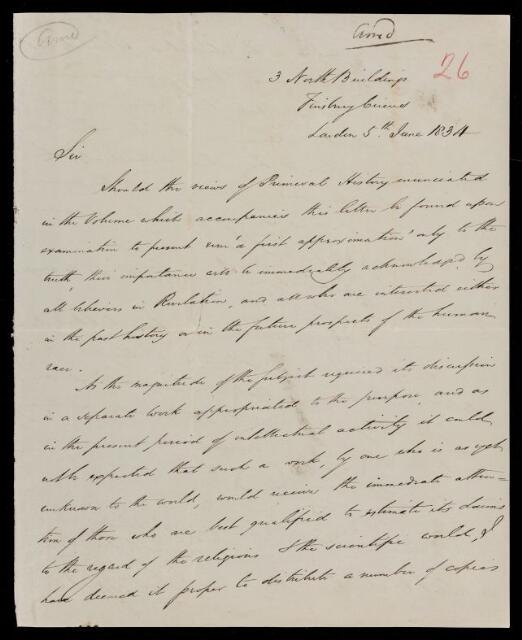 3 North Buildings
26
Finsbury Circus
London 5th June 1834
Sir
Should the views of Primeval History enunciated
in the Volume which accompanies this letter be found upon
examination to present even 'a first approximation' only to the
truth, their importance will be immediately acknowledged by
all believers in Revelation, and all who are interested either
in the past history or in the future prospects of the human
race.
As the magnitude of the subject required its discussion
in a separate work appropriated to the purpose, and as
in the present period of intellectual activity it could
not be expected that such a work, by one who is as yet
unknown to the world, would receive the immediate atten=
tion of those who are best qualified to estimate its claims
to the regard of the religious & the scientific world, I
have deemed it proper to distribute a number of copies